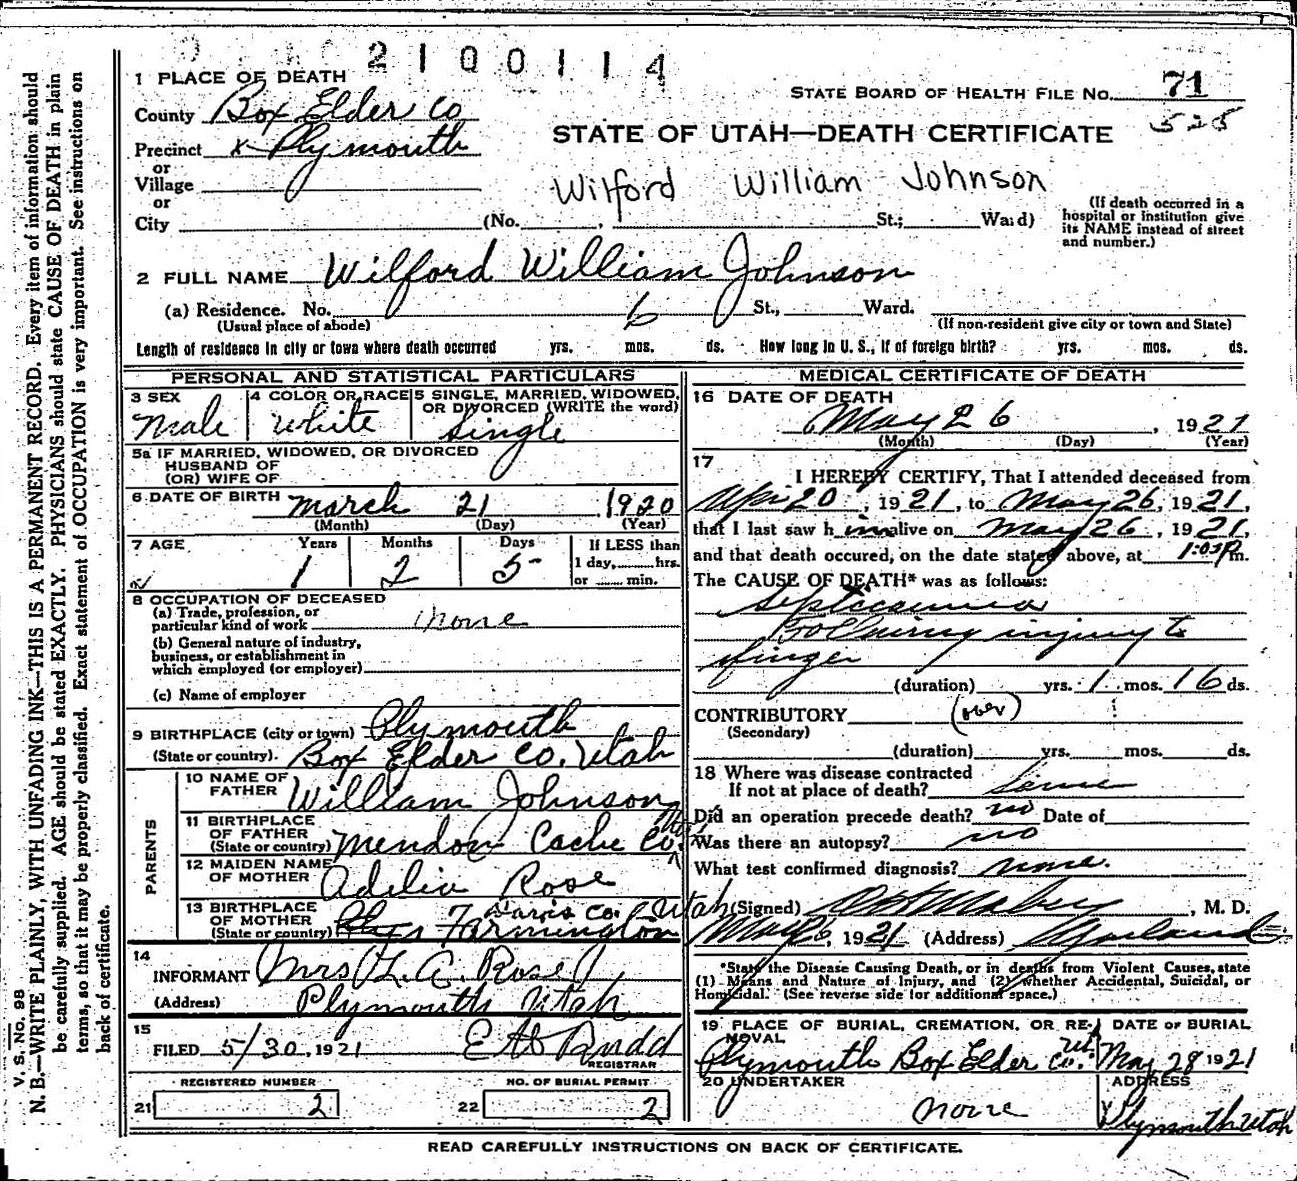 2100114
1 PLACE OF DEATH
County Box Elder Co
Precinct x Plymouth
or
Village
or
City (No. , St.; Ward)
STATE BOARD OF HEALTH FILE No. 71
525
STATE OF UTAH—DEATH CERTIFICATE
Wilford William Johnson
(If death occurred in a
hospital or institution give
its NAME instead of street
and number.)
2 FULL NAME Wilford William Johnson
(a) Residence. No. St., Ward.
(Usual place of abode) (If non-resident give city or town and State)
Length of residence in city or town where death occurred yrs. mos. ds. How long in U. S., if of foreign birth? yrs. mos. ds.
PERSONAL AND STATISTICAL PARTICULARS
3 SEX 4 COLOR OR RACE 5 SINGLE, MARRIED, WIDOWED,
OR DIVORCED (WRITE the word)
Male White Single
5a IF MARRIED, WIDOWED, OR DIVORCED
HUSBAND OF
(OR) WIFE OF
6 DATE OF BIRTH March 21 1920
(Month) (Day) (Year)
7 AGE Years Months Days If LESS than
1 day,........hrs.
or ...... min.
1 2 5
8 OCCUPATION OF DECEASED
(a) Trade, profession, or
particular kind of work none
(b) General nature of industry,
business, or establishment in
which employed (or employer)
(c) Name of employer
9 BIRTHPLACE (city or town) Plymouth
(State or country). Box Elder Co. Utah
PARENTS
10 NAME OF
FATHER William Johnson
11 BIRTHPLACE
OF FATHER
(State or country) Mendon Cache Co. Utah
12 MAIDEN NAME
OF MOTHER Adelia Rose
13 BIRTHPLACE
OF MOTHER
(State or country) Farmington Davis Co. Utah
14
INFORMANT Mrs L. A. Rose
(Address) Plymouth Utah
15
FILED 5/30, 1921 Rudd
REGISTRAR
REGISTERED NUMBER NO. OF BURIAL PERMIT
21 2 22 2
MEDICAL CERTIFICATE OF DEATH
16 DATE OF DEATH
May 26, 1921
(Month) (Day) (Year)
17
I HEREBY CERTIFY, That I attended deceased from
Apr 20, 1921, to May 26, 1921,
that I last saw h im alive on May 26, 1921,
and that death occured, on the date stated above, at P m.
The CAUSE OF DEATH* was as follows:
Septicaemia
Following injury to
finger
(duration) yrs. 1 mos. 16 ds.
CONTRIBUTORY (over)
(Secondary)
(duration) yrs. mos. ds.
18 Where was disease contracted
If not at place of death? Same
Did an operation precede death? no Date of
Was there an autopsy? no
What test confirmed diagnosis? none.
(Signed) , M. D.
May 26, 1921 (Address) Garland
*State the Disease Causing Death, or in deaths from Violent Causes, state
(1) Means and Nature of Injury, and (2) whether Accidental, Suicidal, or
Homicidal. (See reverse side for additional space.)
19 PLACE OF BURIAL, CREMATION, OR RE-
MOVAL
DATE OF BURIAL
Plymouth Box Elder Co. Ut. May 28 1921
20 UNDERTAKER ADDRESS
None Plymouth Utah
READ CAREFULLY INSTRUCTIONS ON BACK OF CERTIFICATE.
V. S. No. 98
N. B.—WRITE PLAINLY, WITH UNFADING INK—THIS IS A PERMANENT RECORD. Every item of information should
be carefully supplied. AGE should be stated EXACTLY. PHYSICIANS should state CAUSE OF DEATH in plain
terms, so that it may be properly classified. Exact statement of OCCUPATION is very important. See instructions on
back of certificate.